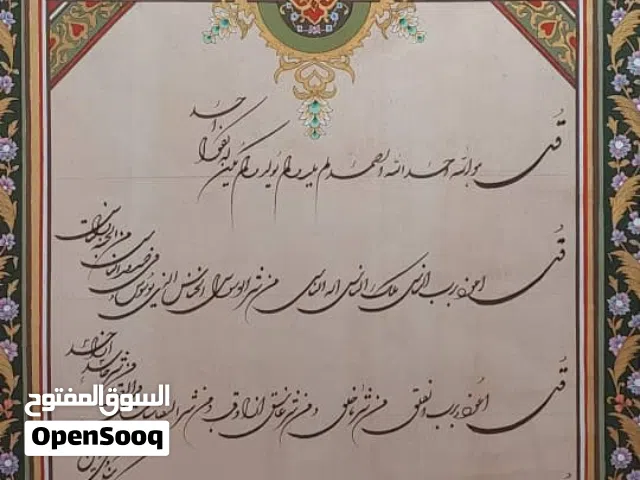 قل هو الله احد الله الصمد لم یلد و لم یولد و لم یکن له کفوا احد
قل اعوذ برب الناس ملک الناس اله الناس من شر الوسواس الخناس الذی یوسوس فی صدور الناس من الجنة و الناس
قل اعوذ برب الفلق من شر ما خلق و من شر غاسق اذا وقب و من شر النفاثات
و من شر حاسد اذا حسد
السوق المفتوح
OpenSooq